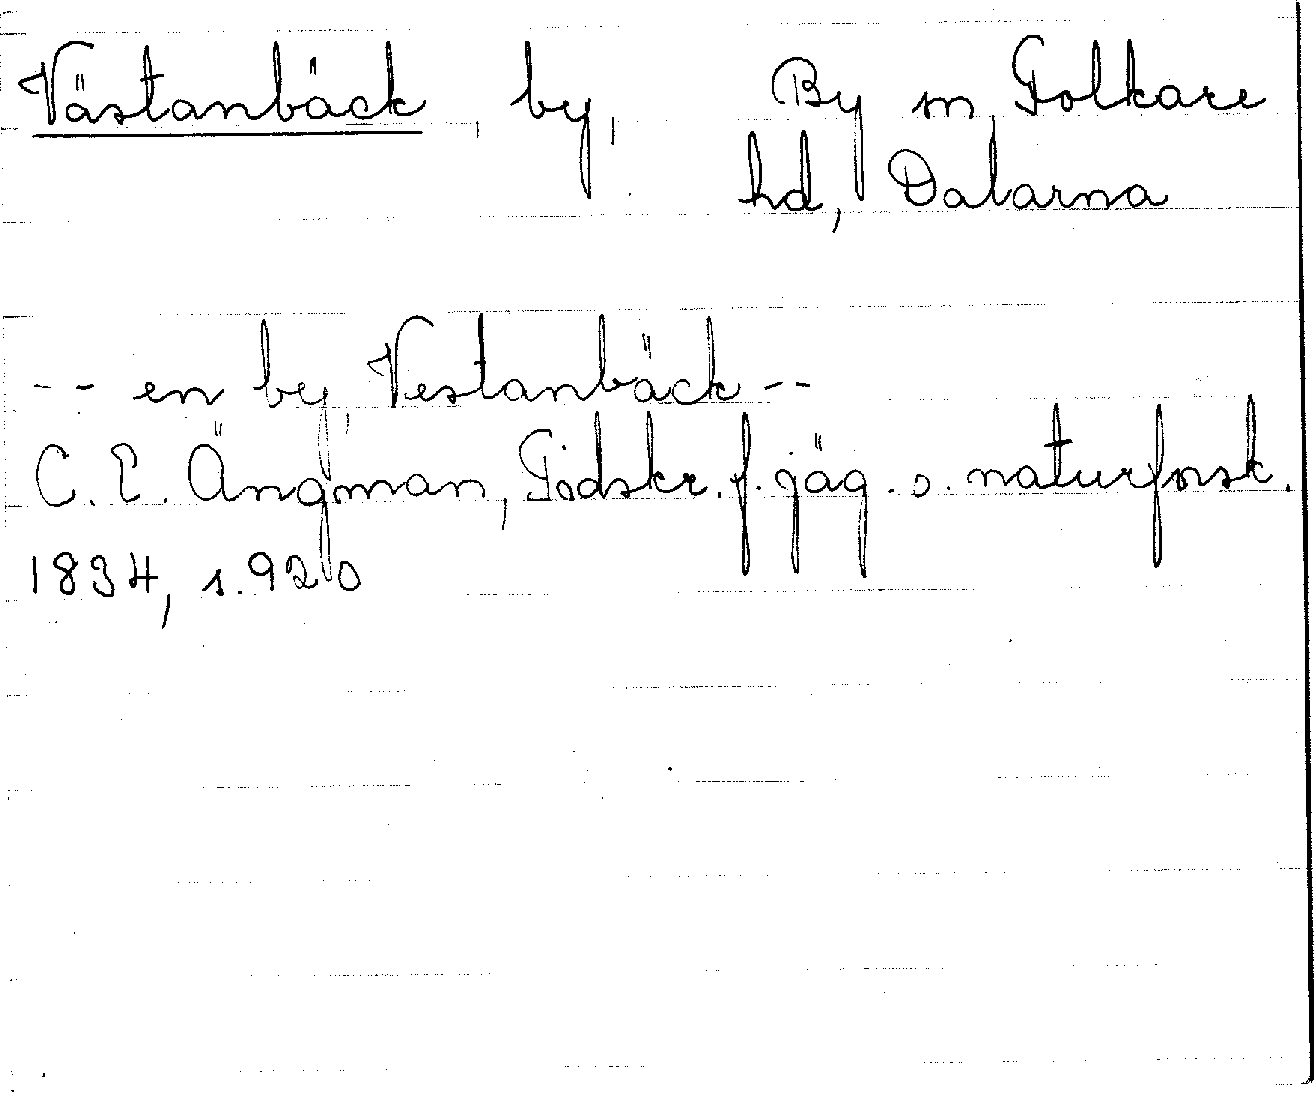 Västanbäck, by, By sn, Folkare
hd, Dalarna
-- en by, Vestanbäck --
C. E. Ängman, Tidskr. f. jäg. o. naturforsk.
1834, s. 920